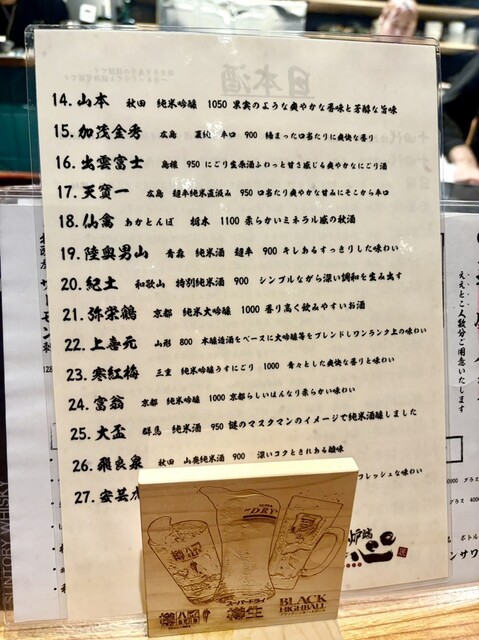 日本酒
14. 山本 秋田 純米吟醸 1050 果実のような爽やかな香味と芳醇な旨味
15. 加茂金秀 広島 夏純 辛口 900 締まった口当たりに爽快な香り
16. 出雲富士 島根 950 にごり生原酒ふわっと甘さ感じる爽やかなにごり酒
17. 天寶一 広島 超辛純米直汲み 950 口当たり爽やかな甘みにそこから辛口
18. 仙禽 あかとんぼ 栃木 1100 柔らかいミネラル感の秋酒
19. 陸奥男山 青森 純米酒 超辛 900 キレあるすっきりした味わい
20. 紀土 和歌山 特別純米酒 900 シンプルながら深い調和を生み出す
21. 弥栄鶴 京都 純米大吟醸 1000 香り高く飲みやすいお酒
22. 上喜元 山形 800 本醸造酒をベースに大吟醸等をブレンドしワンランク上の味わい
23. 寒紅梅 三重 純米吟醸うすにごり 1000 青々とした爽快な香りと味わい
24. 富翁 京都 純米吟醸 1000 京都らしいはんなり柔らかい味わい
25. 大盃 群馬 純米酒 950 謎のマスクマンのイメージで純米酒醸しました
26. 飛良泉 秋田 山廃純米酒 900 深いコクときれある酸味
27. 安芸 フレッシュな味わい
炉端
ええとこ人数分ご用意いたします
SUNTORY WHISKY
DRY
スーパードライ
樽生
樽ハイ
BLACK
HIGHBALL